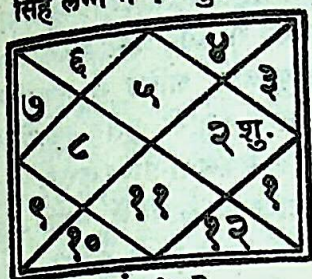 सिंह लग्न
६ ४
७ ५ ३
८ २ शु.
९ ११ १
१० १२